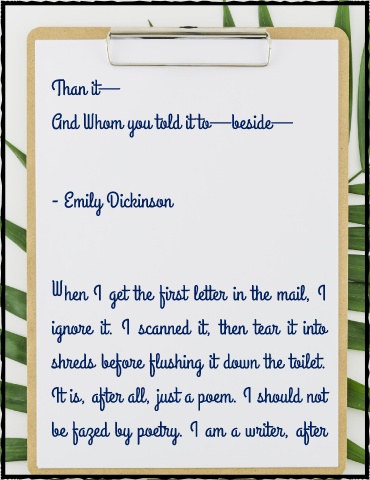 Than it—
And Whom you told it to—beside—
- Emily Dickinson
When I get the first letter in the mail, I
ignore it. I scanned it, then tear it into
shreds before flushing it down the toilet.
It is, after all, just a poem. I should not
be fazed by poetry. I am a writer, after